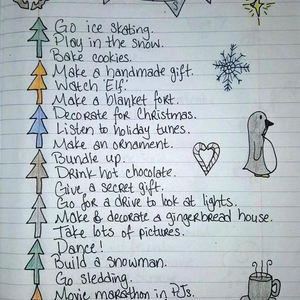 Go ice skating.
Play in the snow.
Bake cookies.
Make a handmade gift.
Watch 'Elf'.
Make a blanket fort.
Decorate for Christmas.
Listen to holiday tunes.
Make an ornament.
Bundle up.
Drink hot chocolate.
Give a secret gift.
Go for a drive to look at lights.
Make & decorate a gingerbread house.
Take lots of pictures.
Dance!
Build a snowman.
Go sledding.
Movie marathon in PJs.